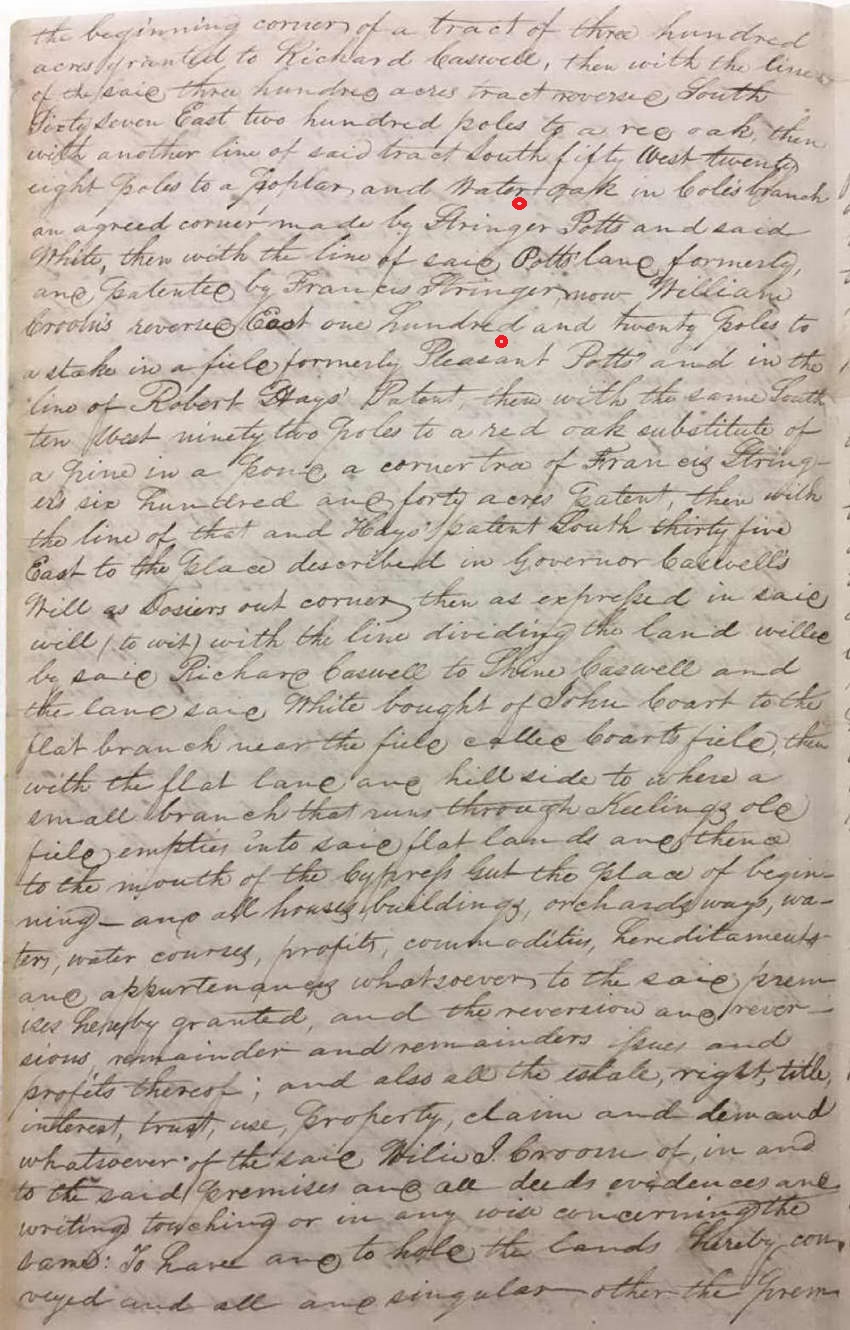 the beginning corner of a tract of three hundred
acres granted to Richard Caswell, then with the line
of the said three hundred acres tract reversed South
Sixty seven East two hundred poles to a red oak, then
with another line of said tract South fifty West twenty
eight poles to a poplar and Water oak in Coles branch
an agreed corner made by Stringer Potts and said
White, then with the line of said Potts' land formerly,
and patented by Francis Stringer, now William
Croom's reversed East one hundred and twenty poles to
a stake in a field formerly Pleasant Potts' and in the
line of Robert Hays' Patent, then with the same South
ten West ninety two poles to a red oak substitute of
a pine in a pond a corner tree of Francis String-
ers six hundred and forty acres Patent, then with
the line of that and Hays' patent South thirty five
East to the place described in Governor Caswell's
Will as Dosiers out corner, then as expressed in said
will (to wit) with the line dividing the land willed
by said Richard Caswell to Shine Caswell and
the land said White bought of John Coart to the
flat branch near the field called Coarts field, then
with the flat land and hill side to where a
small branch that runs through Keelings old
field, empties into said flat lands and thence
to the mouth of the Cypress Gut the place of begin-
ning - and all houses, buildings, orchards, ways, wa-
ters, water courses, profits, commodities, hereditaments
and appurtenances whatsoever, to the said prem
ises hereby granted, and the reversion and rever-
sions, remainder and remainders issues and
profits thereof; and also all the estate, right, title,
interest, trust, use, property, claim and demand
whatsoever of the said Wilie J. Croom of, in and
to the said premises and all deeds evidences and
writings touching or in any wise concerning the
same: To have and to hold the lands hereby con.
veyed and all and singular other the prem